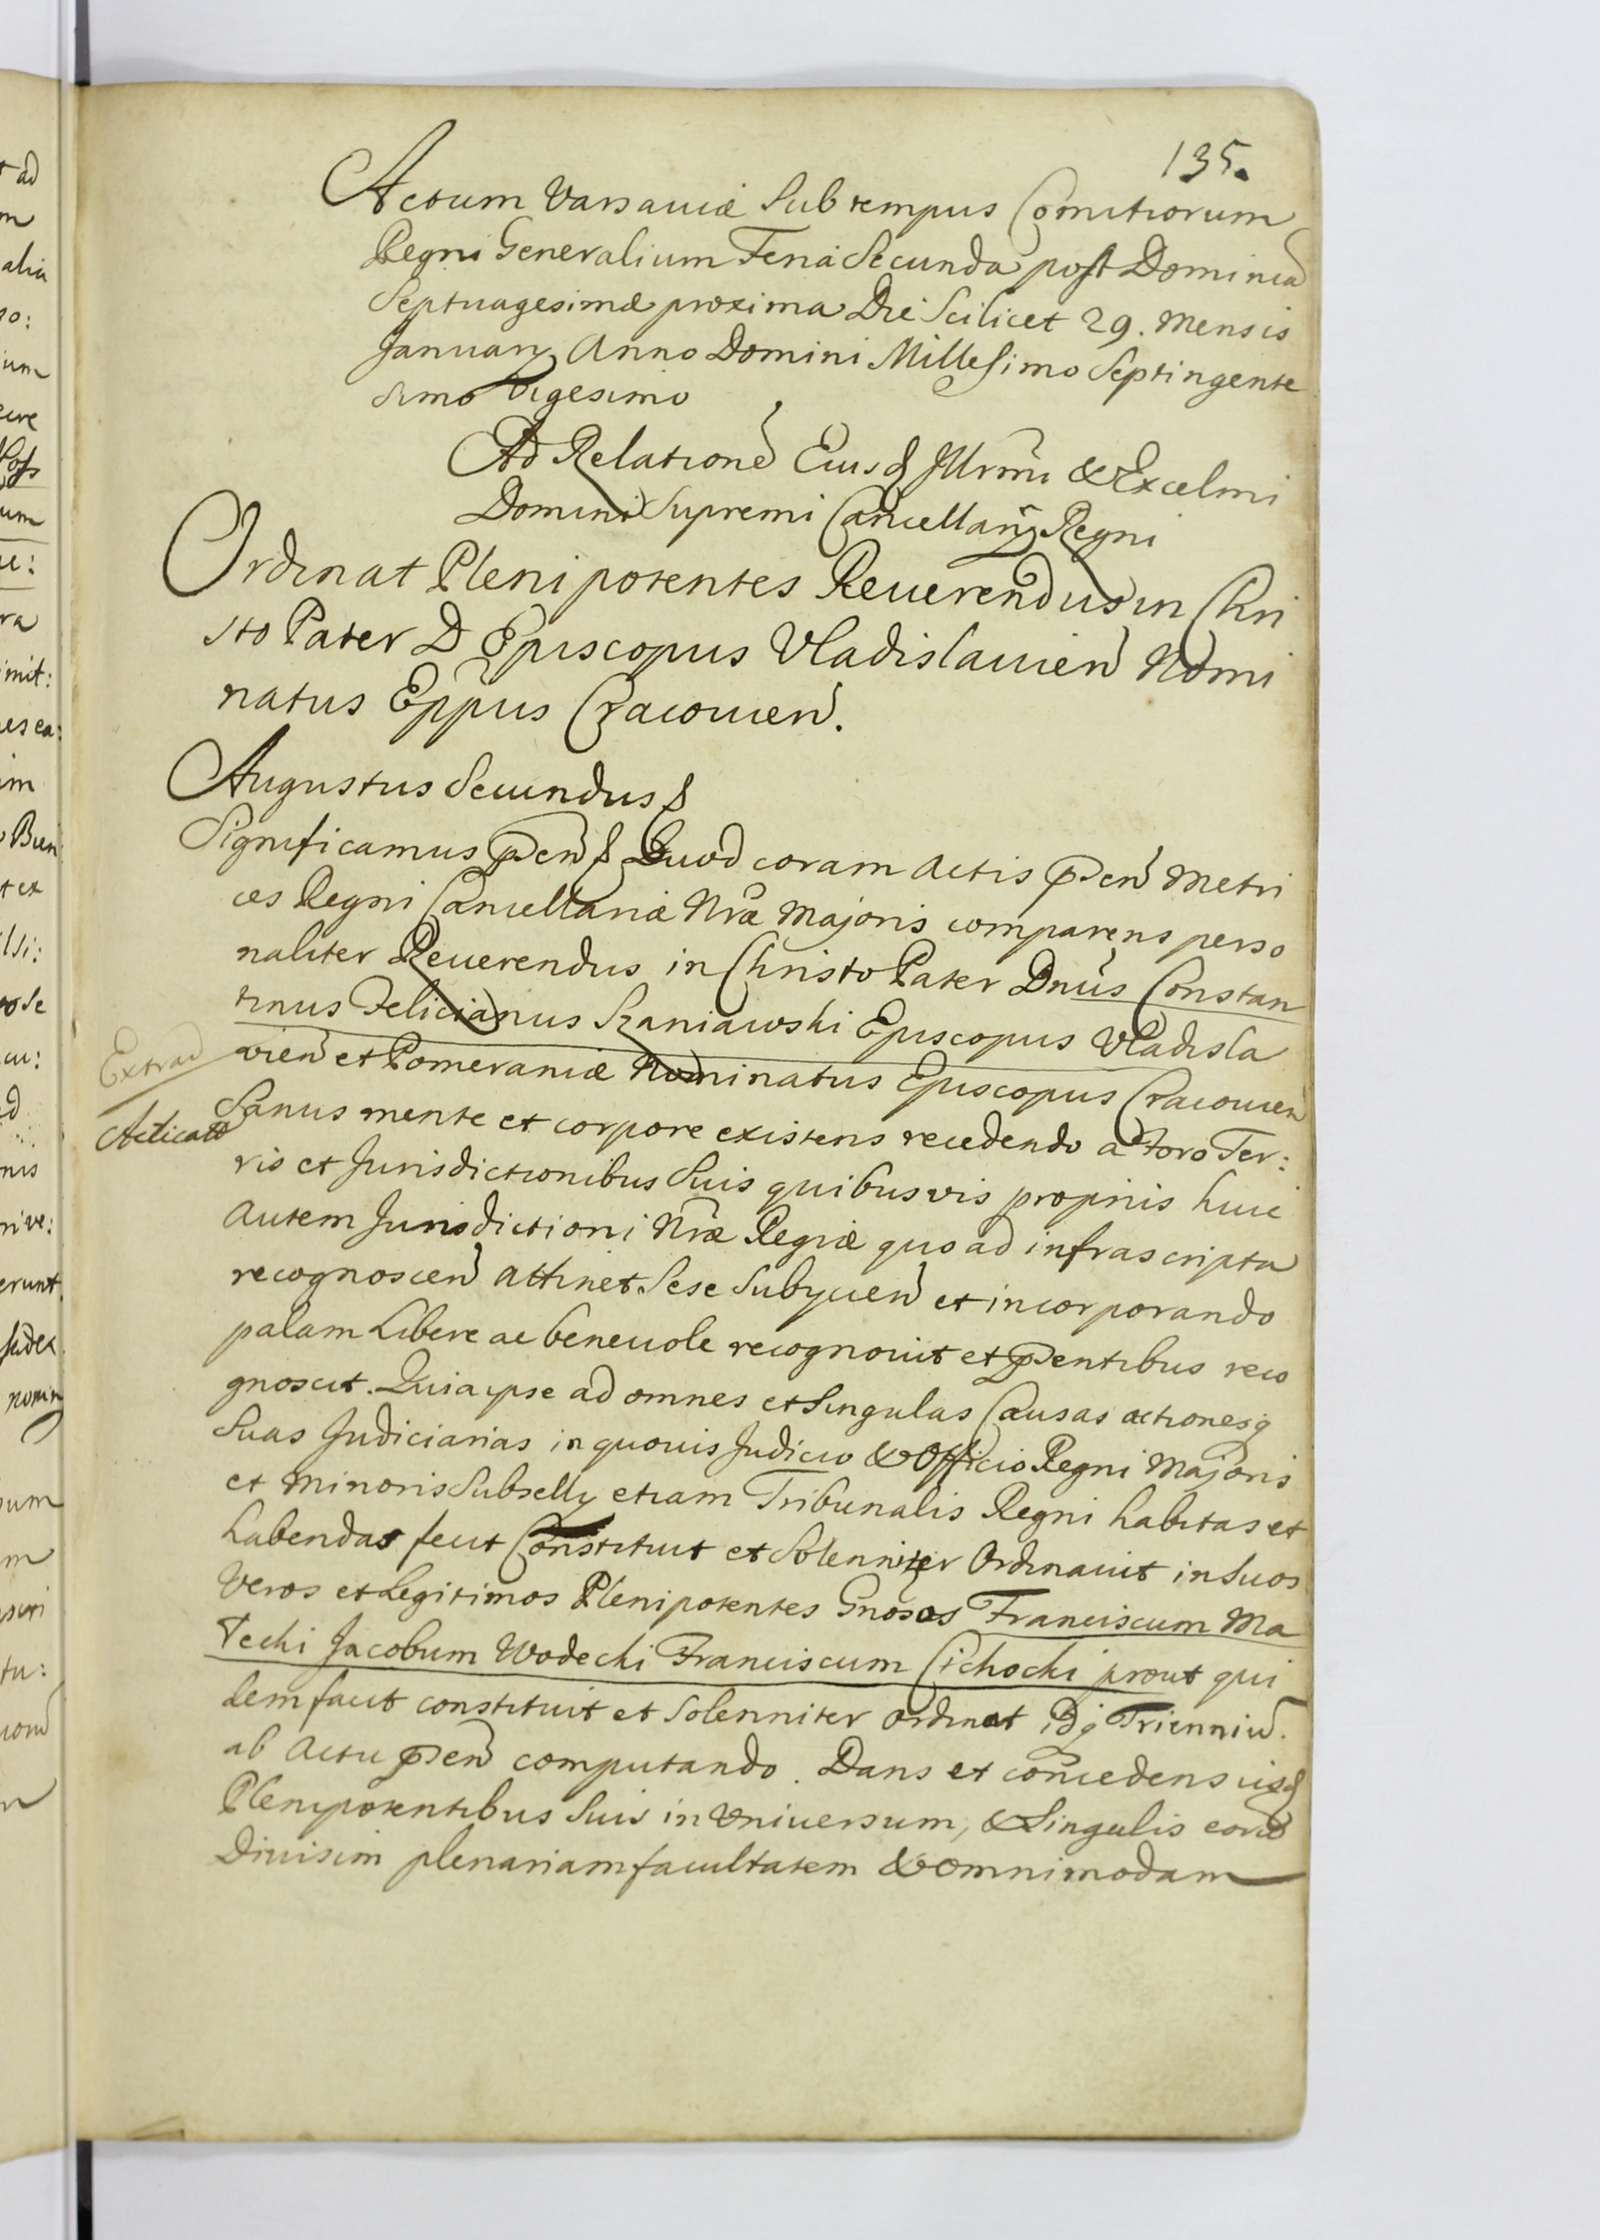 135.
Actum Varsaviæ Sub tempus Comitiorum
Regni Generalium Feria Secunda post Dominicã
Septuagesimæ proxima Die Scilicet 29. Mensis
Januarÿ Anno Domini Millesimo Septingente
simo Vigesimo
Ad Relationẽ Eiusd Illrmi & Excelmi
Domini Supremi Cancellarÿ Regni
Ordinat Plenipotentes Reuerendus in Chri
sto Pater D Episcopus Vladislauien Nomi
natus Eppus Cracouien.
Augustus Secundus
Significamus Psen Quod coram Actis Psen Metri
ces Regni Cancellariæ Nræ Majoris comparens perso
naliter Reuerendus in Christo Pater Dnus Constan
tinus Felicianus Szaniawski Episcopus Vladisla
vien et Pomeraniæ Nominatus Episcopus Cracouien
Extrad
Sanus mente et corpore existens recedendo a Foro Ter:
Acticatt
ris et Jurisdictionibus Suis quibusvis proprijs huic
Autem Jurisdictioni Nræ Regiæ quo ad infrascripta
recognoscen attinet. Sese Subÿcien et incorporando
palam Libere ac beneuole recognouit et Psentibus reco
gnoscit. Quia ipse ad omnes et Singulas Causas actionesq
Suas Judiciarias in quouis Judicio & Officio Regni Majoris
et Minoris Subsellÿ etiam Tribunalis Regni habitas et
habendas fecit Constituit et Solenniter Ordinauit in Suos
Veros et Legitimos Plenipotentes Gnosos Franciscum Ma
techi Jacobum Wodechi Franciscum Cichochi prout qui
dem facit constituit et Solenniter Ordinat idq Trienniũ.
ab Actu Psen computando. Dans et concedens iisd
Plenipotentibus Suis in Vniuersum, & Singulis eorũ
Diuisim plenariam facultatem & omnimodam